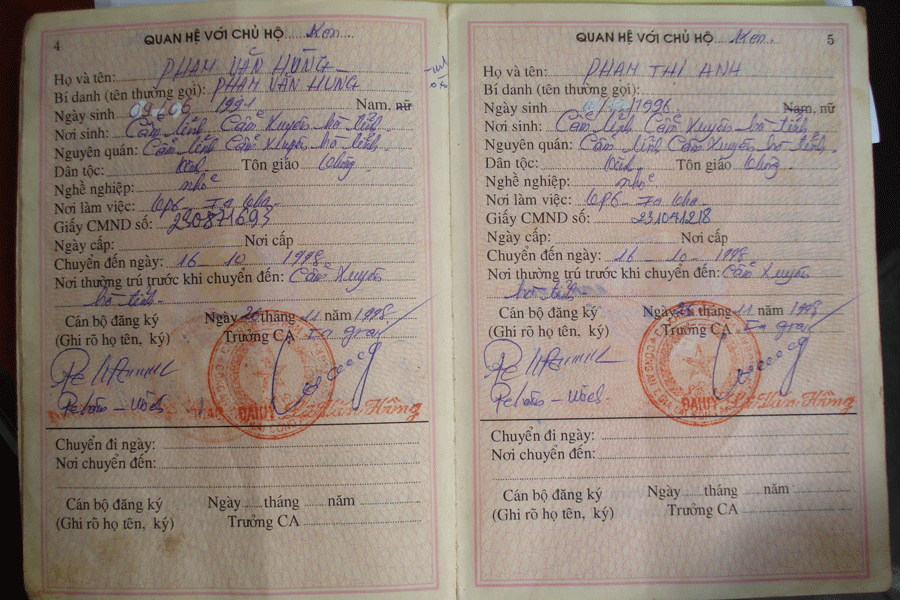 4
QUAN HỆ VỚI CHỦ HỘ Con
Họ và tên: PHẠM VĂN HÙNG
Bí danh (tên thường gọi): PHẠM VĂN HÙNG
Ngày sinh 1991 Nam, nữ
Nơi sinh: Cẩm Lĩnh Cẩm Xuyên hà tĩnh
Nguyên quán: Cẩm Lĩnh Cẩm Xuyên hà tĩnh
Dân tộc: Kinh Tôn giáo không
Nghề nghiệp: nhỏ
Nơi làm việc:
Giấy CMND số: 230871693
Ngày cấp: Nơi cấp
Chuyển đến ngày: 16 - 10 - 1998
Nơi thường trú trước khi chuyển đến: Cẩm Xuyên
hà tĩnh
Cán bộ đăng ký Ngày tháng 11 năm 1998
(Ghi rõ họ tên, ký) Trưởng CA Ia grai
ĐẠI ÚY Văn Hồng
Chuyển đi ngày:
Nơi chuyển đến:
Cán bộ đăng ký Ngày tháng năm
(Ghi rõ họ tên, ký) Trưởng CA
5
QUAN HỆ VỚI CHỦ HỘ Con
Họ và tên: PHẠM THỊ ANH
Bí danh (tên thường gọi):
Ngày sinh 1996 Nam, nữ
Nơi sinh: Cẩm Lĩnh Cẩm Xuyên hà tĩnh
Nguyên quán: Cẩm Lĩnh Cẩm Xuyên hà tĩnh
Dân tộc: Kinh Tôn giáo không
Nghề nghiệp: nhỏ
Nơi làm việc:
Giấy CMND số: 231041218
Ngày cấp: Nơi cấp
Chuyển đến ngày: 16 - 10 - 1998
Nơi thường trú trước khi chuyển đến: Cẩm Xuyên
hà tĩnh
Cán bộ đăng ký Ngày tháng 11 năm 1998
(Ghi rõ họ tên, ký) Trưởng CA Ia grai
ĐẠI ÚY Văn Hồng
Chuyển đi ngày:
Nơi chuyển đến:
Cán bộ đăng ký Ngày tháng năm
(Ghi rõ họ tên, ký) Trưởng CA